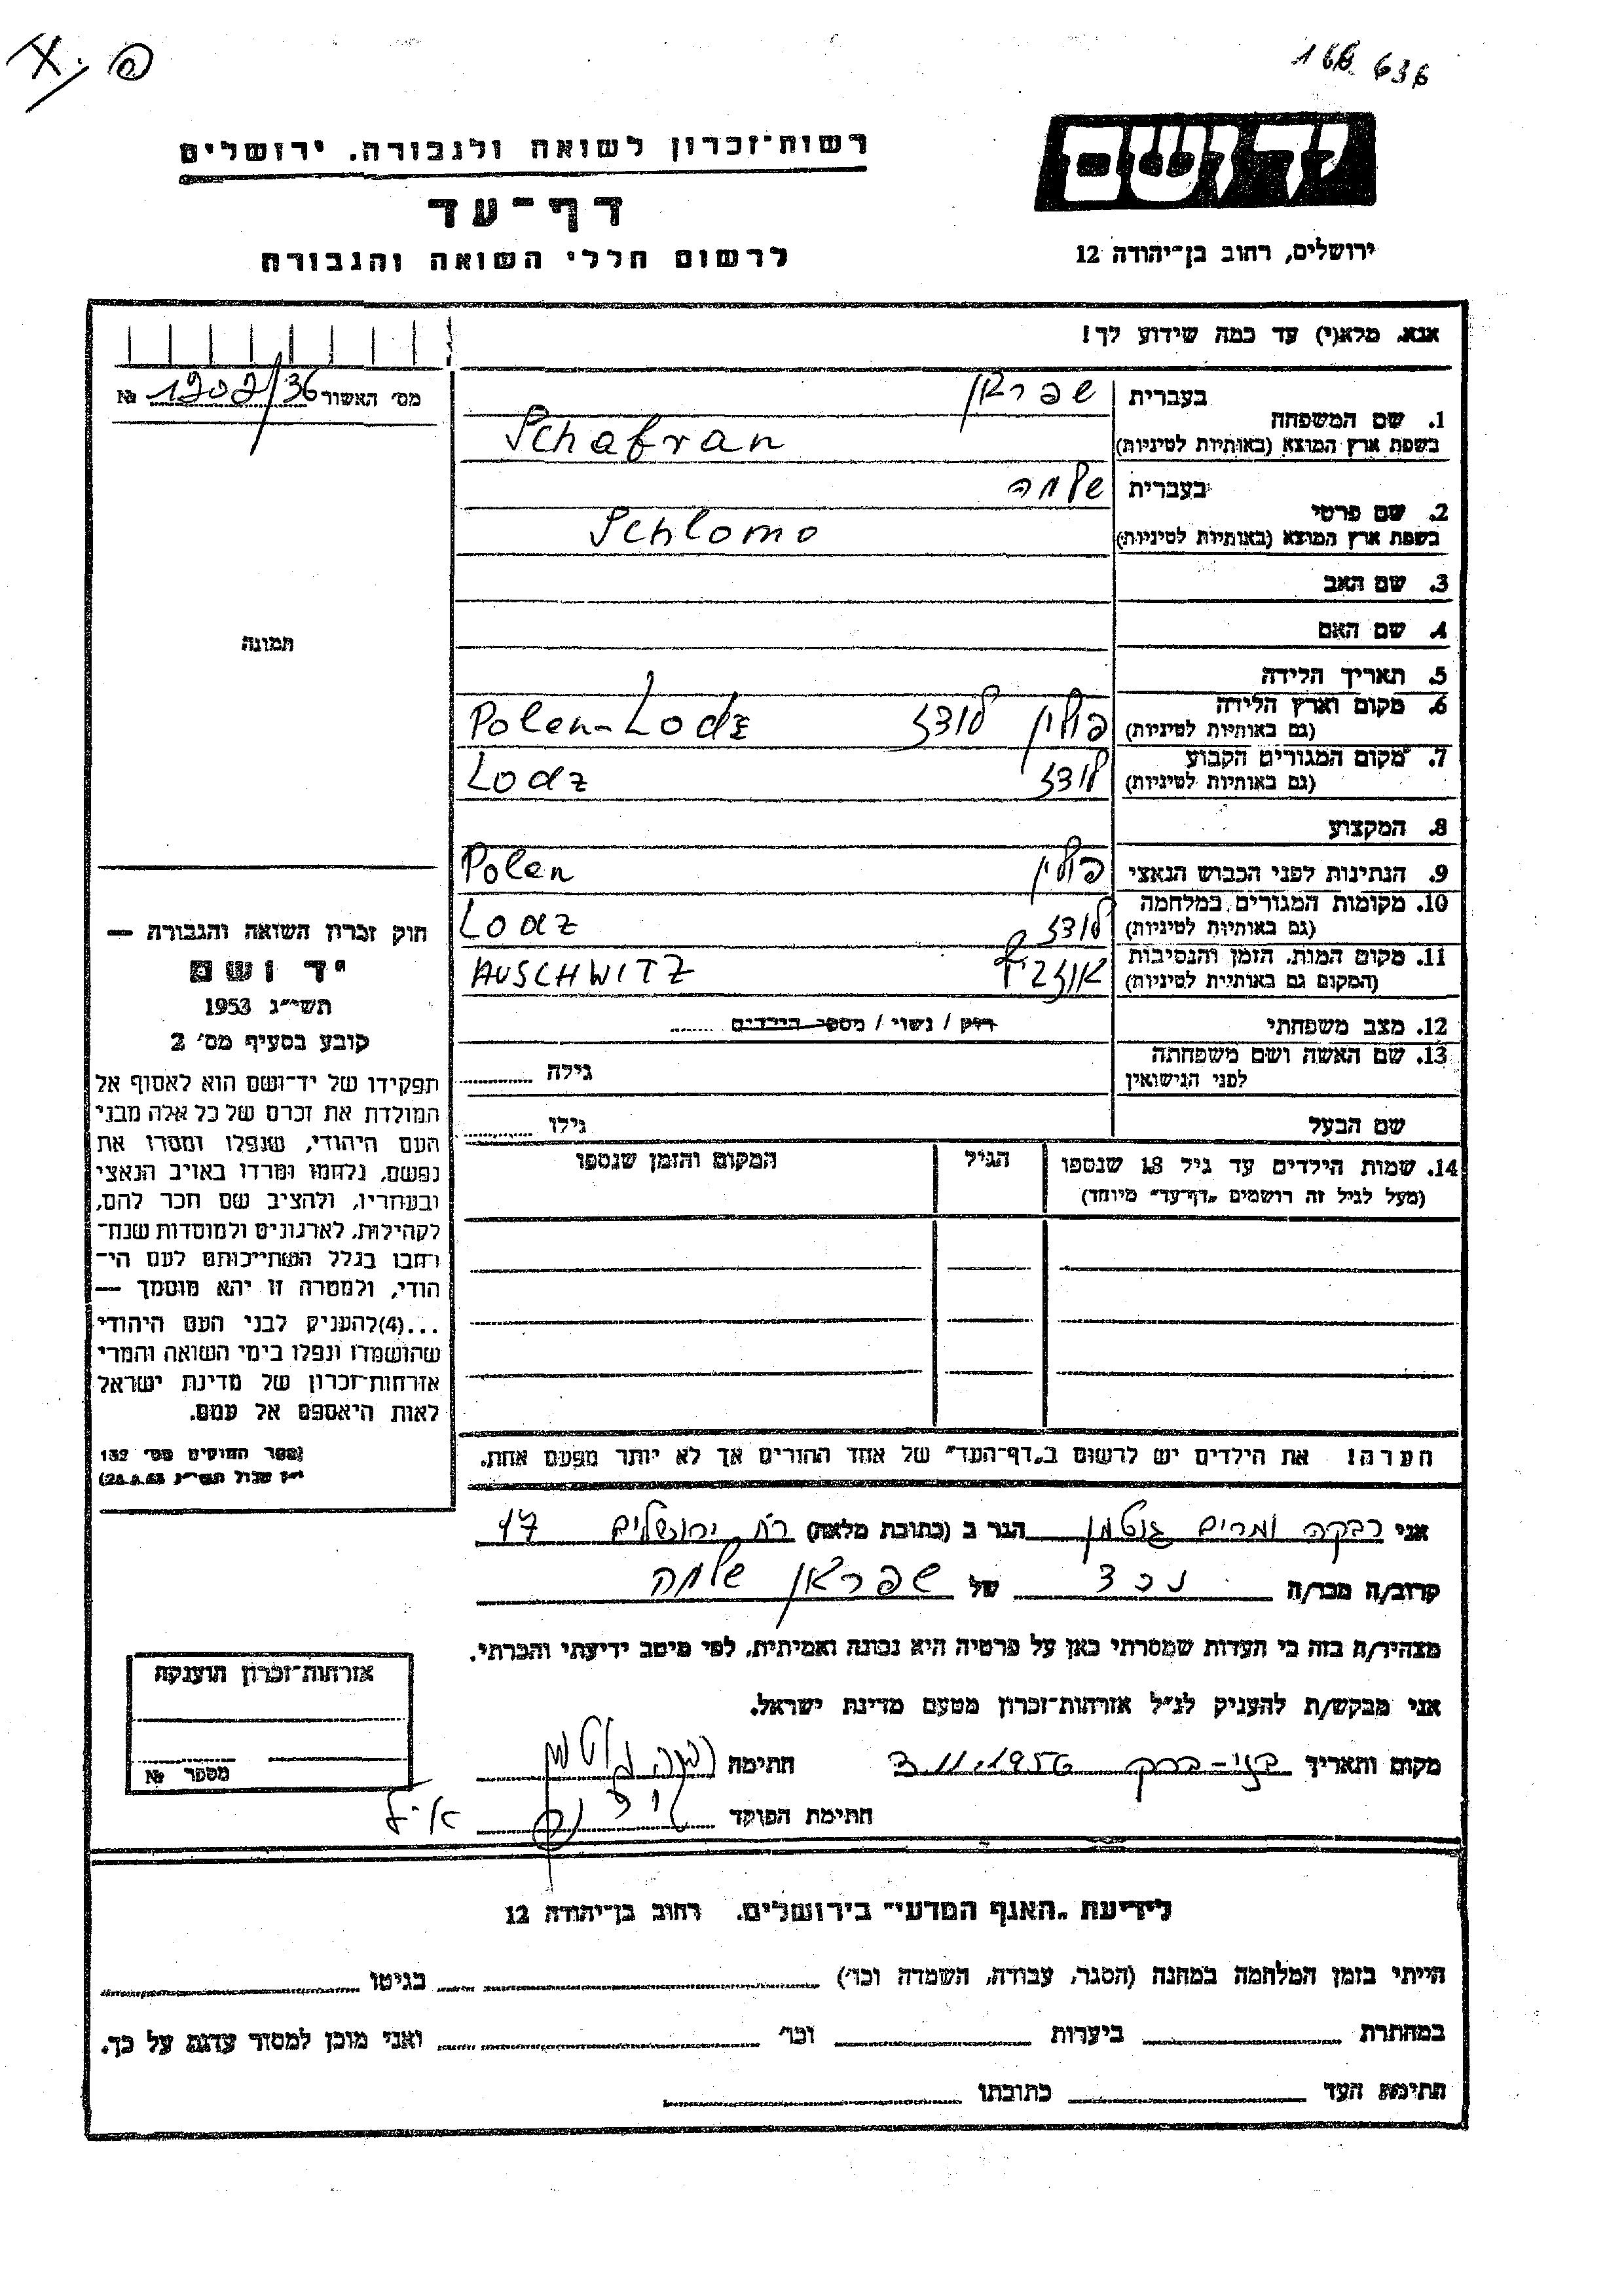 168 636
יד ושם
ירושלים, רחוב בן־יהודה 12
רשות־זכרון לשואה ולגבורה, ירושלים
דף־עד
לרשום חללי השואה והגבורה
אנא, מלא(י) עד כמה שידוע לך!
1. שם המשפחה בעברית שפראן
בשפת ארץ המוצא (באותיות לטיניות) Schafran
2. שם פרטי בעברית שלמה
בשפת ארץ המוצא (באותיות לטיניות) Schlomo
3. שם האב
4. שם האם
5. תאריך הלידה
6. מקום וארץ הלידה פולין לודז Polen-Lodz
(גם באותיות לטיניות)
7. מקום המגורים הקבוע לודז Lodz
(גם באותיות לטיניות)
8. המקצוע
9. הנתינות לפני הכבוש הנאצי פולין Polen
10. מקומות המגורים במלחמה לודז Lodz
(גם באותיות לטיניות)
11. מקום המות, הזמן והנסיבות AUSCHWITZ
(המקום גם באותיות לטיניות)
12. מצב משפחתי רוק / נשוי / מספר הילדים
13. שם האשה ושם משפחתה גילה
לפני הנישואין
שם הבעל גילו
14. שמות הילדים עד גיל 18 שנספו הגיל המקום והזמן שנספו
(מעל לגיל זה רושמים „דף־עד” מיוחד)
הערה! את הילדים יש לרשום ב„דף־העד” של אחד ההורים אך לא יותר מפעם אחת.
מס׳ האשור 1202/36 №
תמונה
חוק זכרון השואה והגבורה —
יד ושם
תשי״ג 1953
קובע בסעיף מס׳ 2
תפקידו של יד־ושם הוא לאסוף אל
המולדת את זכרם של כל אלה מבני
העם היהודי, שנפלו ומסרו את
נפשם, נלחמו ומרדו באויב הנאצי
ובעוזריו, ולהציב שם וזכר להם,
לקהילות, לארגונים ולמוסדות שנח־
רבו בגלל השתייכותם לעם הי־
הודי, ולמטרה זו יהא מוסמך —
...(4)להעניק לבני העם היהודי
שהושמדו ונפלו בימי השואה והמרי
אזרחות־זכרון של מדינת ישראל
לאות היאספם אל עמם.
(ספר החוקים מס׳ 132
אני רבקה ומרים גוטמן הגר ב (כתובת מלאה) רח׳ ירושלים 17
קרוב/ה מכר/ה נכד של שפראן שלמה
מצהיר/ה בזה כי העדות שמסרתי כאן על פרטיה היא נכונה ואמיתית, לפי מיטב ידיעתי והכרתי.
אני מבקש/ת להעניק לנ״ל אזרחות־זכרון מטעם מדינת ישראל.
מקום ותאריך בני-ברק 3.11.1956 חתימה רבקה גוטמן
חתימת הפוקד
אזרחות־זכרון הוענקה
מספר №
לידיעת „האגף המדעי” בירושלים, רחוב בן־יהודה 12
הייתי בזמן המלחמה במחנה (הסגר, עבודה, השמדה וכו׳) בגיטו
במחתרת ביערות וכו׳ ואני מוכן למסור עדות על כך.
חתימת העד כתובתו